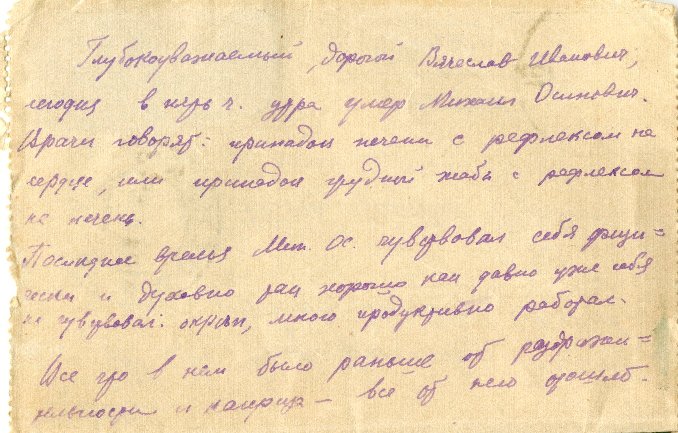 Глубокоуважаемый, дорогой Вячеслав Иванович,
сегодня в пять ч. утра умер Михаил Осипович.
Врачи говорят: припадок печени с рефлексом на
сердце, или припадок грудной жабы с рефлексом
на печень.
Последнее время Мих. Ос. чувствовал себя физи=
чески и духовно так хорошо как давно уже себя
не чувствовал: окреп, много продуктивно работал.
Все что в нем было раньше от раздражи=
тельности и каприза — всё от него отошло.